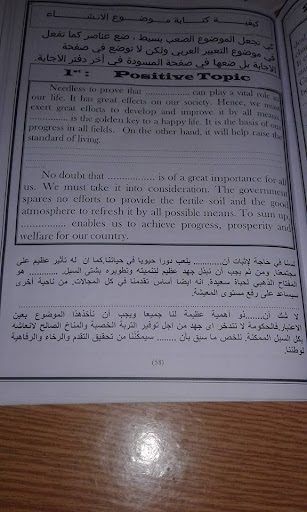 كيفيـــة كتـــابة مـوضـــوع الانشـــاء
لكي تجعل الموضوع الصعب بسيط ، ضع عناصر كما تفعل
في موضوع التعبير العربي ولكن لا توضع في صفحة
الاجابة بل ضعها في صفحة المسودة في أخر دفتر الاجابة.
1st : Positive Topic
Needless to prove that .................. can play a vital role to
our life. It has great effects on our society. Hence, we must
exert great efforts to develop and improve it by all means
............... is the golden key to a happy life. It is the basis of our
progress in all fields. On the other hand, it will help raise the
standard of living.
No doubt that .................. is of a great importance for all
us. We must take it into consideration. The government
spares no efforts to provide the fertile soil and the good
atmosphere to refresh it by all possible means. To sum up
............... enables us to achieve progress, prosperity and
welfare for our country.
لسنا في حاجة لإثبات أن.......... يلعب دورا حيويا في حياتنا,كما ان له تأثير عظيم على
مجتمعنا, ومن ثم يجب أن نبذل جهد عظيم لتنميته وتطويره بشتى السبل. ............ هو
المفتاح الذهبي لحياة سعيدة, انه ايضا أساس تقدمنا في كل المجالات, من ناحية أخرى
سيساعد على رفع مستوى المعيشة.
لا شك أن........ذو اهمية عظيمة لنا جميعا ويجب أن نأخذهذا الموضوع بعين
الاعتبار فالحكومة لا تتدخر اى جهد من اجل توفير التربة الخصبة والمناخ الصالح لانعاشه
بكل السبل الممكنة. نلخص ما سبق بأن ........ سيمكننا من تحقيق التقدم والرخاء والرفاهية
لوطننا.
(58)